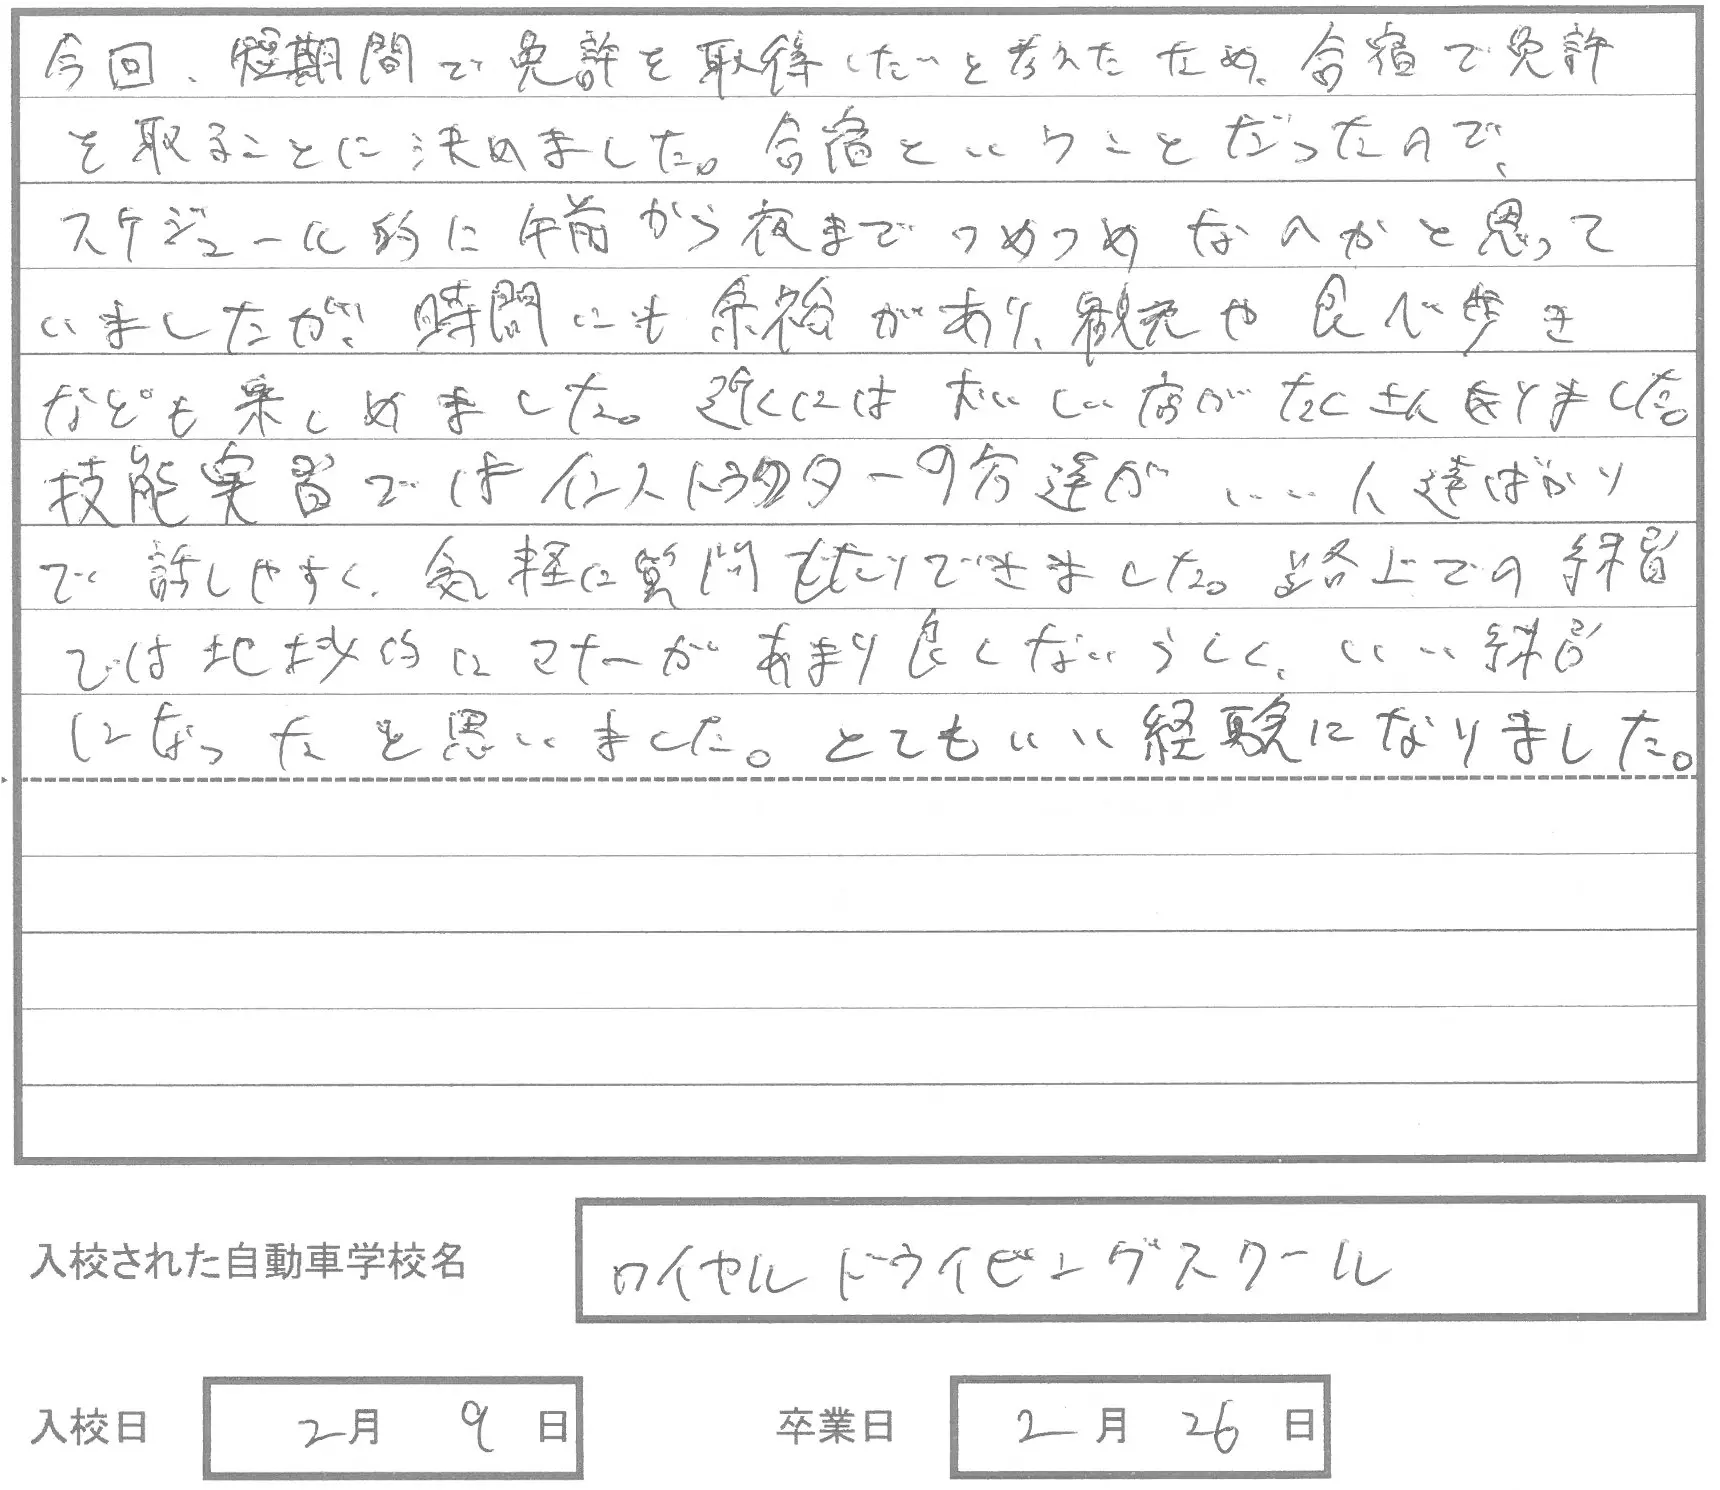 今回、短期間で免許を取得したいと考えたため、合宿で免許
を取ることに決めました。合宿ということだったので、
スケジュール的に午前から夜までつめつめなのかと思って
いましたが、時間にも余裕があり、観光や食べ歩き
なども楽しめました。近くにはおいしい店がたくさんありました。
技能実習ではインストラクターの方達がいい人達ばかり
で話しやすく、気軽に質問もたりできました。路上での練習
では地域的にマナーがあまり良くないらしく、いい練習
になったと思いました。とてもいい経験になりました。
入校された自動車学校名 ロイヤルドライビングスクール
入校日 2月 9日 卒業日 2月 26日